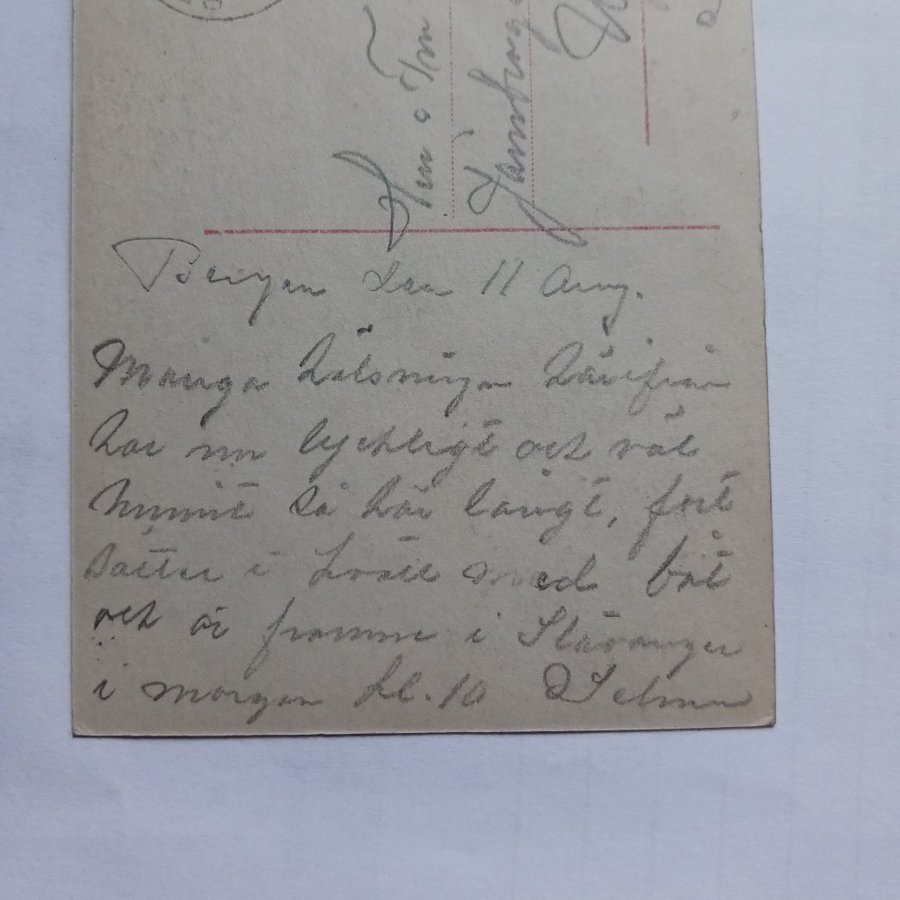 Bergen den 11 Aug.
Många hälsningar härifrån
har nu lyckligt och väl
hunnit så här långt, fort
sätter i kväll med båt
och är framme i Stavanger
i morgon kl. 10 Selma
Herr o Fru